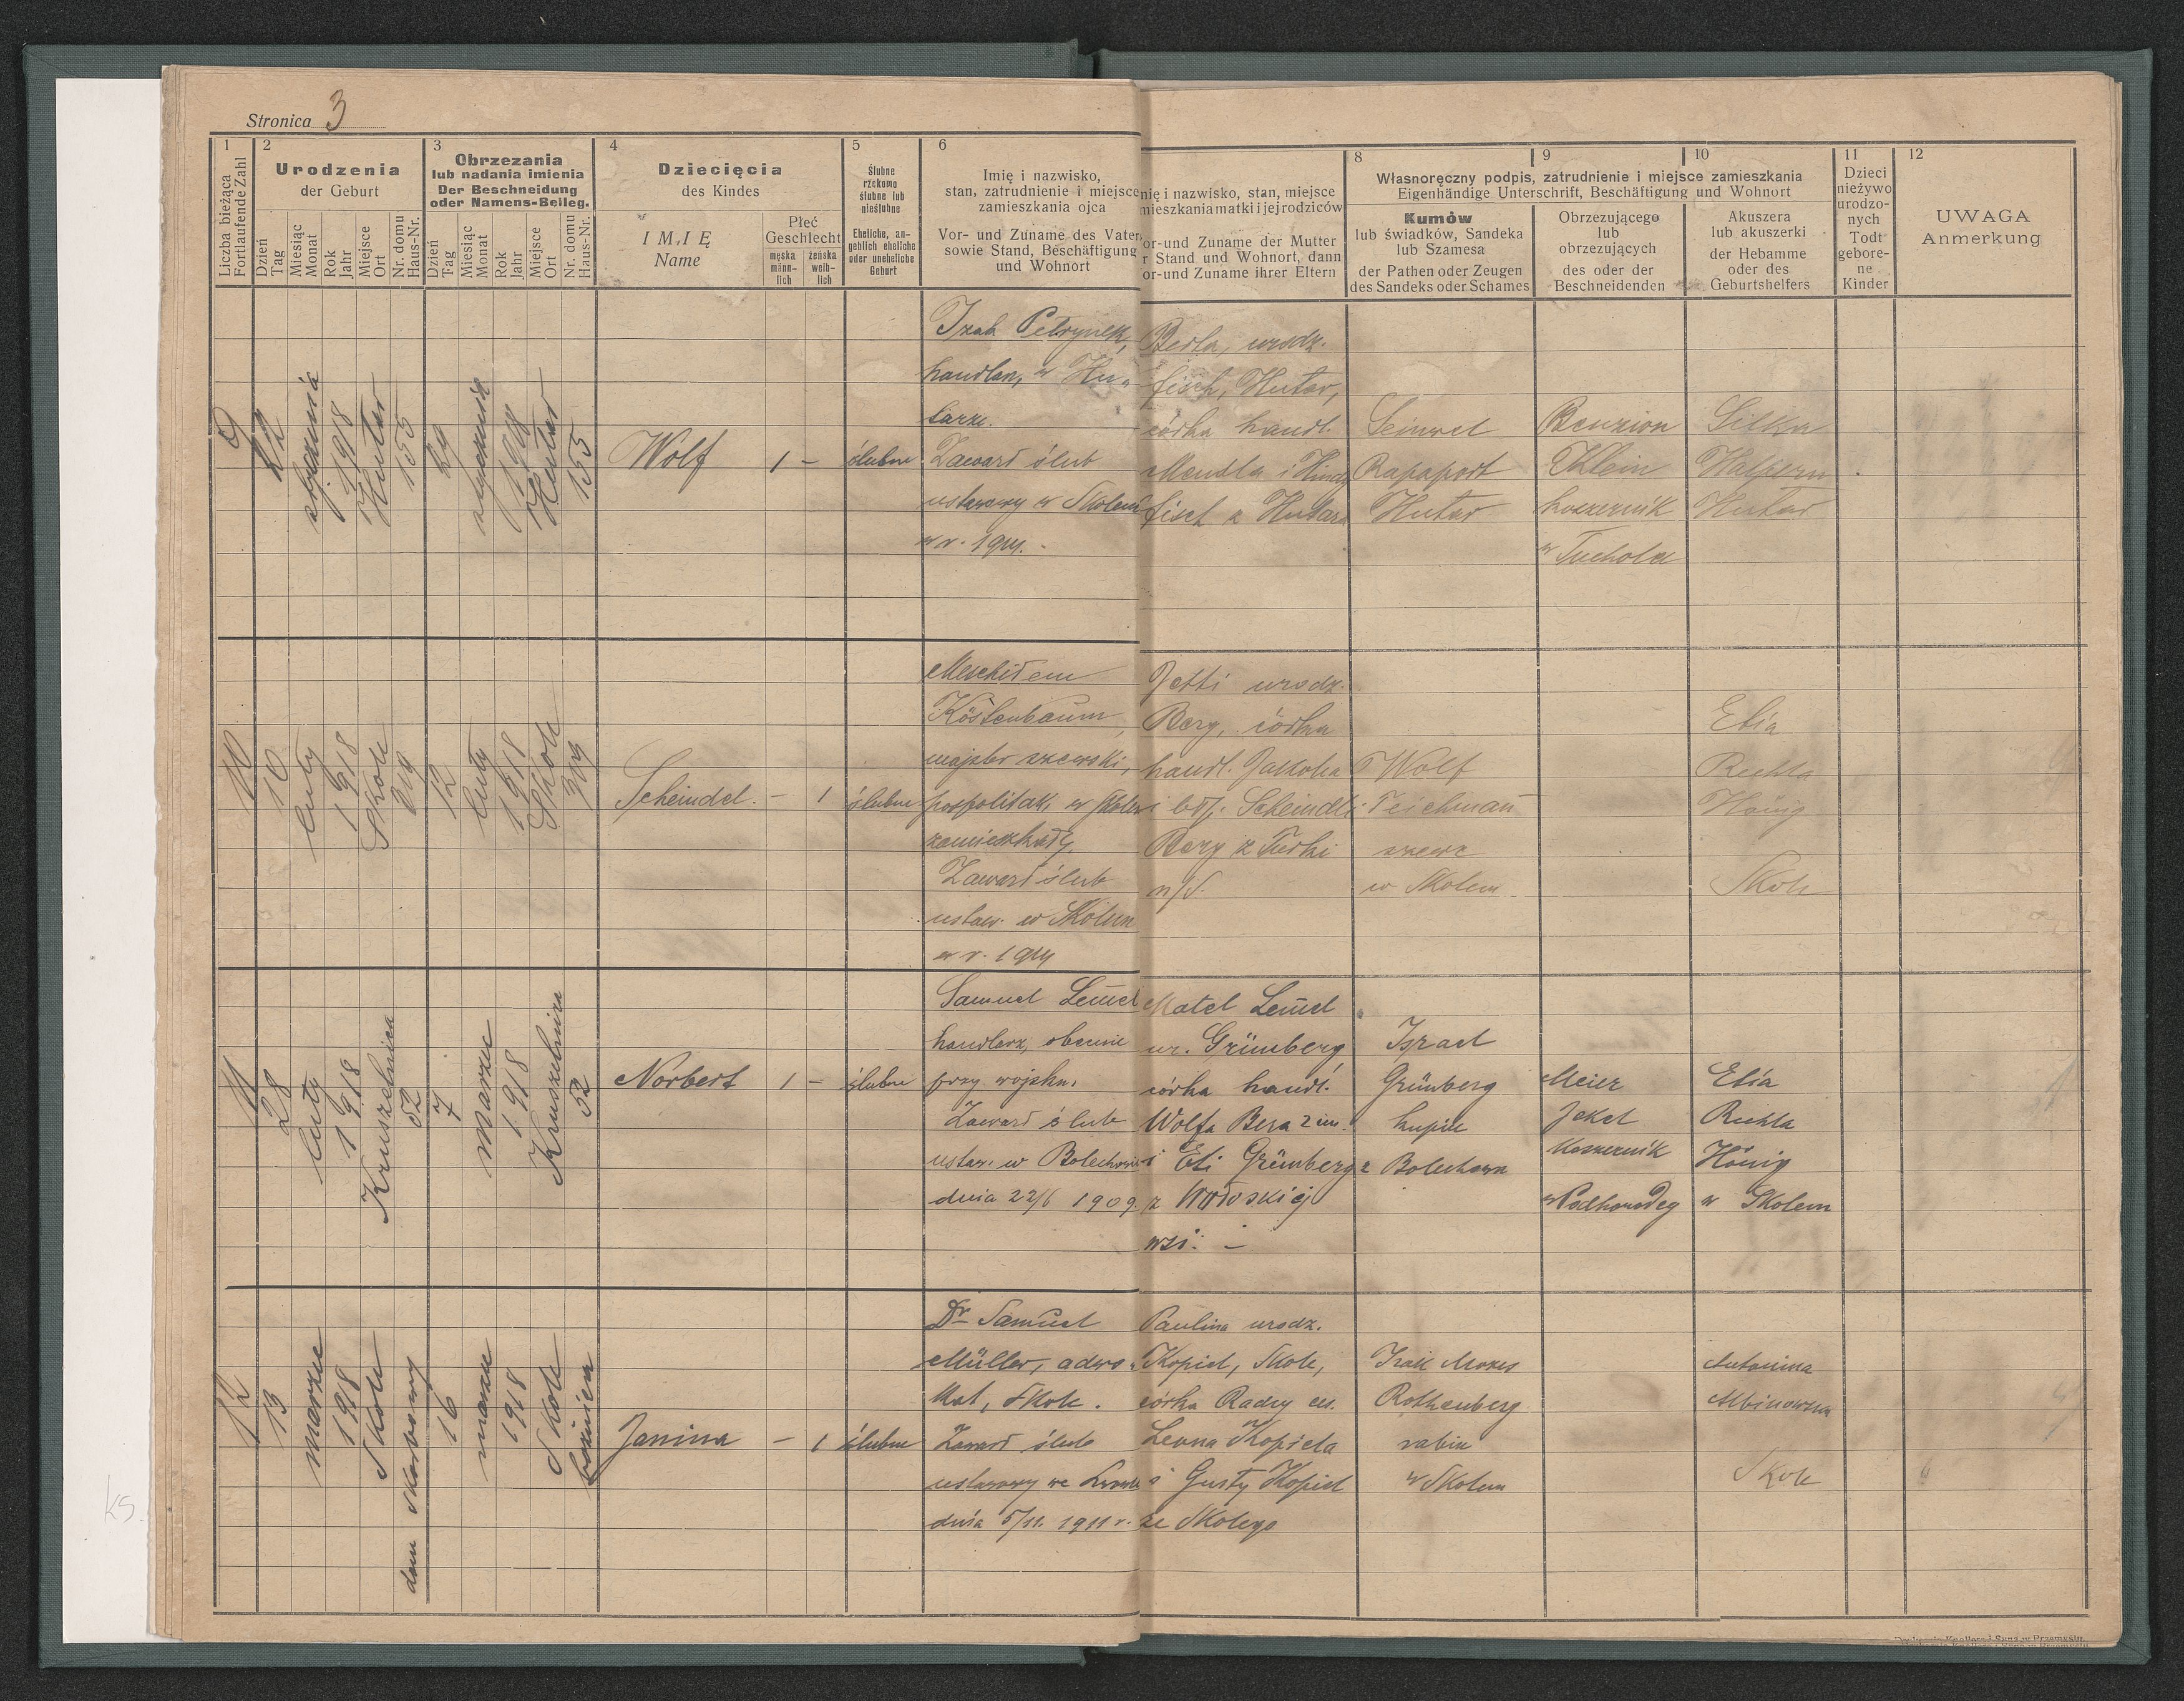 Stronica 3
1
Liczba bieżąca
Fortlaufende Zahl
2
Urodzenia
der Geburt
Dzień
Tag
Miesiąc
Monat
Rok
Jahr
Miejsce
Ort
Nr. domu
Haus-Nr.
3
Obrzezania
lub nadania imienia
Der Beschneidung
oder Namens-Beileg.
Dzień
Tag
Miesiąc
Monat
Rok
Jahr
Miejsce
Ort
Nr. domu
Haus-Nr.
4
Dziecięcia
des Kindes
IMIĘ
Name
Płeć
Geschlecht
męska
männ-
lich
żeńska
weib-
lich
5
Ślubne
rzekomo
ślubne lub
nieślubne
Eheliche, an-
geblich eheliche
oder uneheliche
Geburt
6
Imię i nazwisko,
stan, zatrudnienie i miejsce
zamieszkania ojca
Vor- und Zuname des Vater
sowie Stand, Beschäftigung
und Wohnort
nię i nazwisko, stan, miejsce
mieszkania matki i jej rodziców
or-und Zuname der Mutter
r Stand und Wohnort, dann
or-und Zuname ihrer Eltern
Własnoręczny podpis, zatrudnienie i miejsce zamieszkania
Eigenhändige Unterschrift, Beschäftigung und Wohnort
8
Kumów
lub świadków, Sandeka
lub Szamesa
der Pathen oder Zeugen
des Sandeks oder Schames
9
Obrzezującego
lub
obrzezujących
des oder der
Beschneidenden
10
Akuszera
lub akuszerki
der Hebamme
oder des
Geburtshelfers
11
Dzieci
nieżywo
urodzo-
nych
Todt
gebore-
ne
Kinder
12
UWAGA
Anmerkung
9
22
stycznia
1918
Hutar
155
29
stycznia
1918
Hutar
155
Wolf
1 -
ślubne
Izak Petrynek,
handlarz, w Hu-
tarze.
Zawarł ślub
ustawowy w Skolem
w r. 1914.
Berta, urodz.
Fisch, Hutar,
córka handl.
Mendla i Hindy
Fisch z Hutara
Seinwel
Rapaport
Hutar
Benzion
Klein
koszernik
w Tuchola
Silka
Halpern
Hutar
10
10
luty
1918
Skole
319
12
luty
1918
Skole
319
Scheindel.
- 1
ślubne
Köstenbaum,
majster szewski,
pospolitak, w Skolem
zamieszkały.
Zawarł ślub
ustaw. w Skolem
w r. 1914
Jetti urodz.
Berg, córka
handl. Jakoba
Scheindli
Berg z Turki
n/S.
Wolf
Teichman
szewc
w Skolem
Etia
Rechla
Hönig
Skole
11
28
luty
1918
Kruszelnica
52
7
marzec
1918
Kruszelnica
52
Norbert
1 -
ślubne
Samuel Lemel
handlarz, obecnie
przy wojsku.
Zawarł ślub
ustaw. w Bolechowie
dnia 22/6 1909.
Matel Lemel
ur. Grünberg
córka handl.
Wolfa Bera 2 im.
i Eti Grünberg
z Wołoskiej
wsi. -
Israel
Grünberg
kupiec
z Bolechowa
Meier
Jekel
koszernik
w Podhorodeg
Etia
Rechla
Hönig
w Skolem
12
13
marzec
1918
Skole
dom skarbowy
16
marzec
1918
Skole
bożnica
Janina
- 1
ślubne
Dr Samuel
Müller, adwo-
kat, Skole.
Zawarł ślub
ustawowy we Lwowie
dnia 5/11. 1911 r.
Paulina urodz.
Kopiel, Skole,
córka Radcy ces.
Leona Kopiela
i Gusty Kopiel
ze Skolego
Izak Mozes
Rothenberg
rabin
w Skolem
Antonina
Albinowska
Skole
ks.